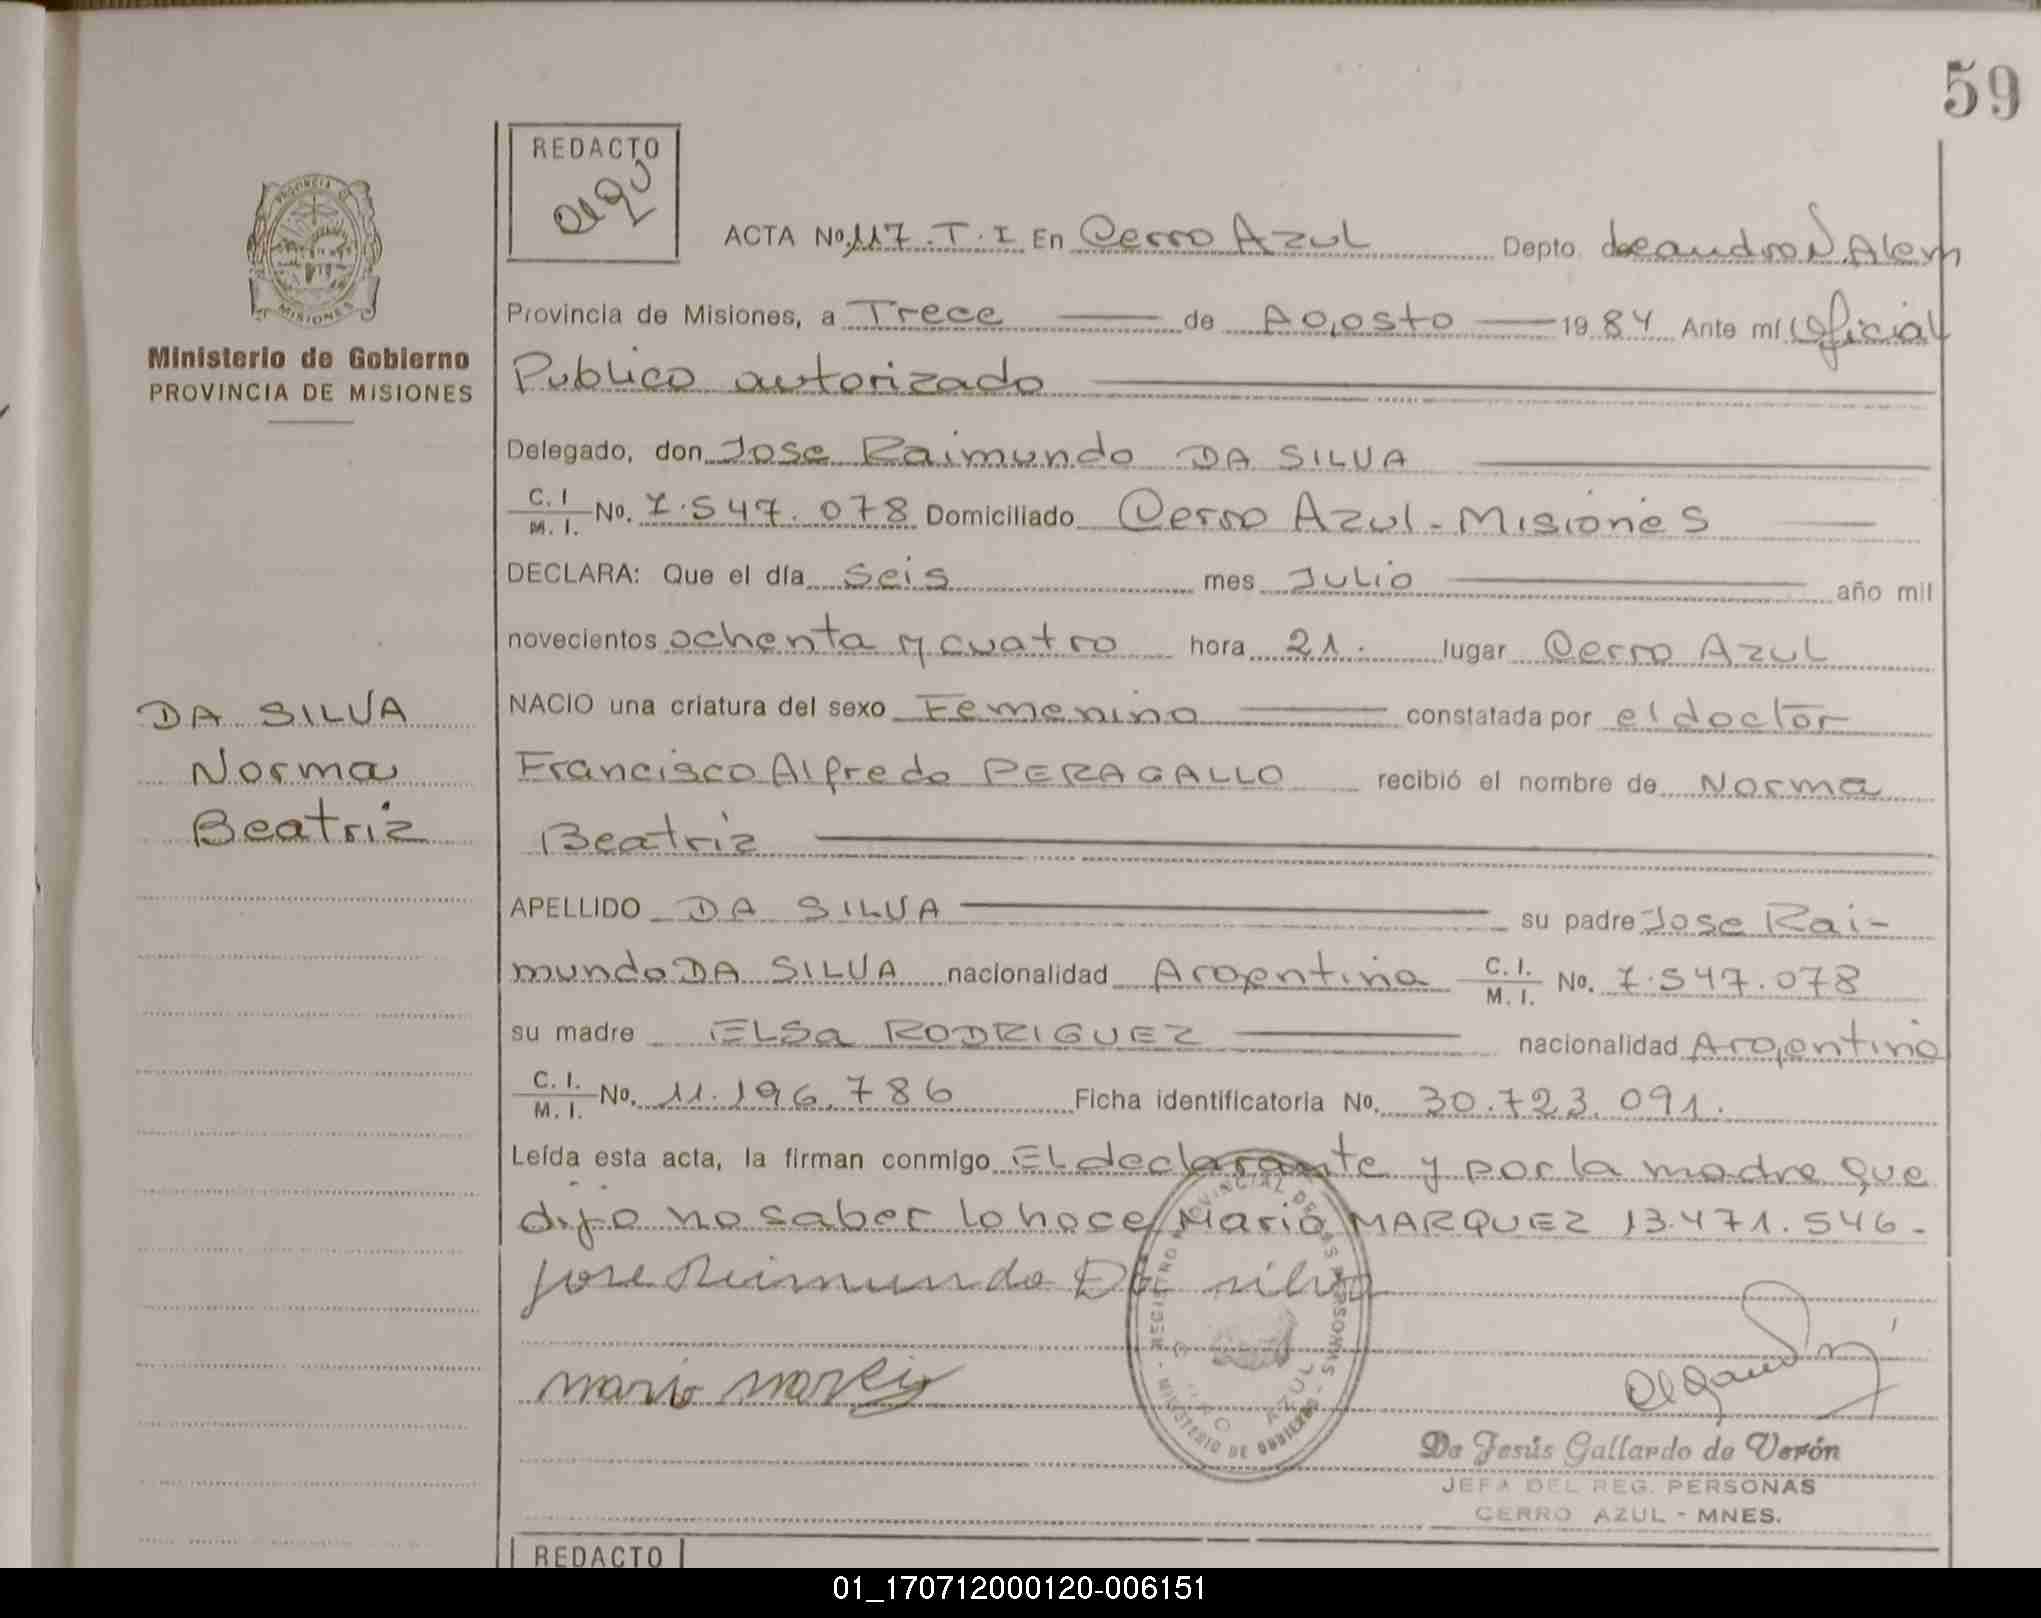 59
REDACTO
PROVINCIA
MISIONES
Ministerio de Gobierno
PROVINCIA DE MISIONES
ACTA No. 117. T. I En Cerro Azul Depto. Leandro N. Alem
Provincia de Misiones, a Trece de Agosto 1984 Ante mí Oficial
Publico autorizado
Delegado, don Jose Raimundo DA SILVA
C. I. / M. I. No. 7.547.078 Domiciliado Cerro Azul - Misiones
DECLARA: Que el día seis mes Julio año mil
novecientos ochenta y cuatro hora 21. lugar Cerro Azul
NACIO una criatura del sexo Femenino constatada por el doctor
Francisco Alfredo PERAGALLO recibió el nombre de Norma
Beatriz
DA SILVA
Norma
Beatriz
APELLIDO DA SILVA su padre Jose Rai-
mundo DA SILVA nacionalidad Argentina C. I. / M. I. No. 7.547.078
su madre ELSA RODRIGUEZ nacionalidad Argentina
C. I. / M. I. No. 11.196.786 Ficha identificatoria No. 30.723.091.
Leída esta acta, la firman conmigo El declarante y por la madre que
dijo no saber lo hace Mario MARQUEZ 13.471.546.-
Jose Reimundo Da silva
REGISTRO PROVINCIAL DE LAS PERSONAS - MINISTERIO DE GOBIERNO
AZUL
mario
De Jesús Gallardo de Verón
JEFA DEL REG. PERSONAS
CERRO AZUL - MNES.
REDACTO
01_170712000120-006151